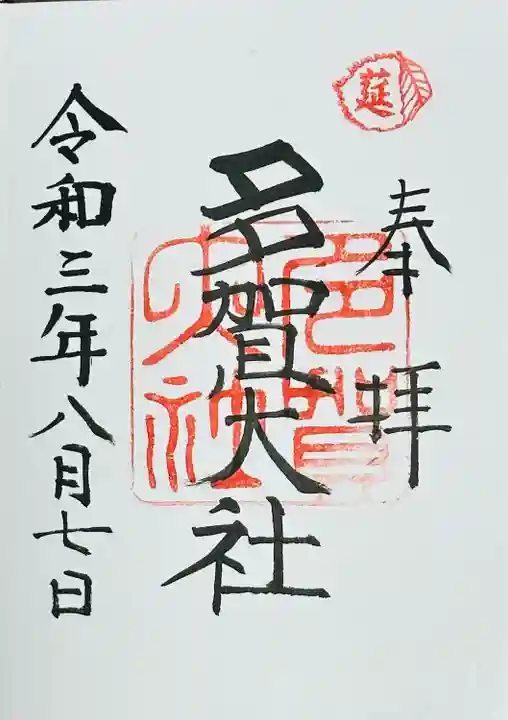 莚
奉拝
多賀大社
多賀大社
令和三年八月七日